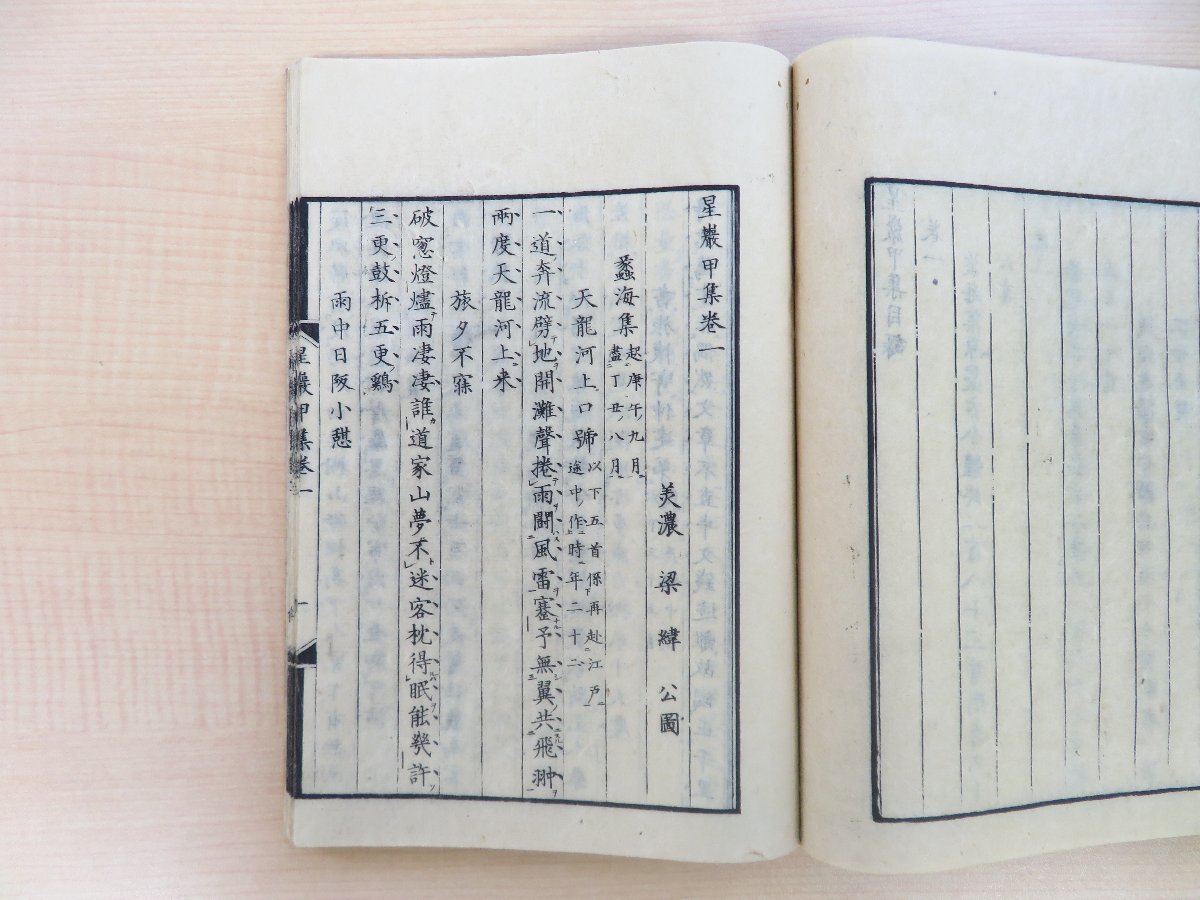 星巖甲集卷一
美濃 梁 緯 公圖
蠡海集 起庚午ノ九月 盡丁丑ノ八月
天龍河上口號 以下五首係再赴江戸 途中ノ作時年二十二
一道ノ奔流劈地開灘聲捲雨鬪風雷蹇予無翼共飛翀
兩度天龍河上来
旅夕不寐
破窓燈燼雨凄凄誰道家山夢不迷客枕得眠能幾許
三更ノ鼓柝五更ノ鷄
雨中日阪小憇
星巖甲集卷一
一